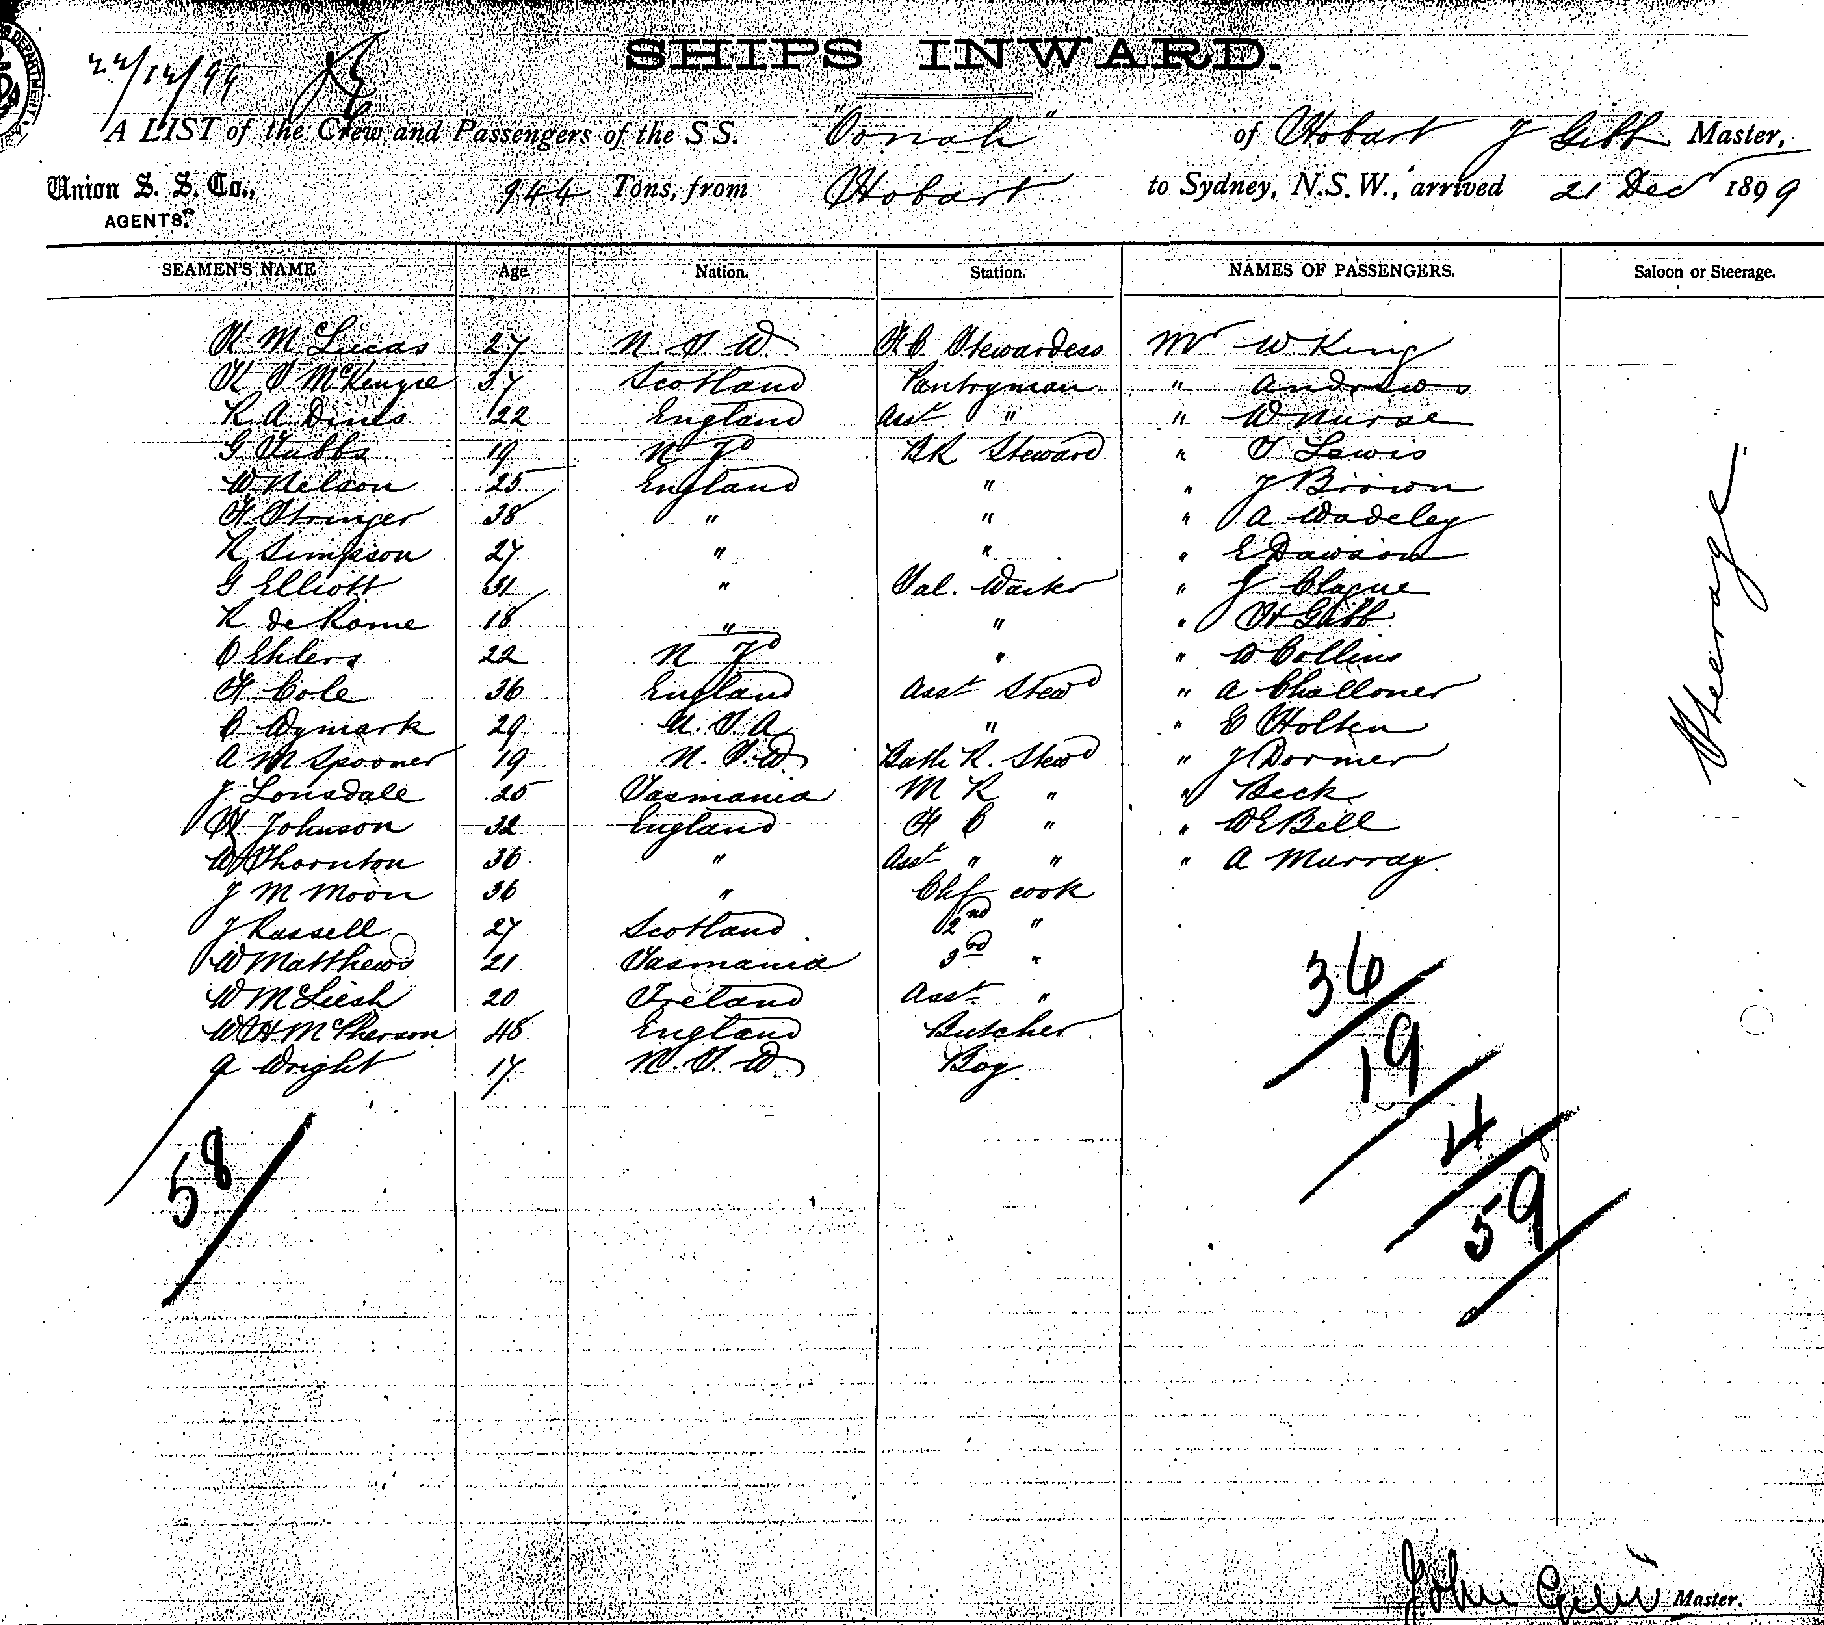 22/12/99
SHIPS INWARD.
A LIST of the Crew and Passengers of the S.S. "Oonah" of Hobart J Gibb Master,
Union S. S. Co., 944 Tons, from Hobart to Sydney, N.S.W., arrived 21 Dec 1899
AGENTS.
SEAMEN'S NAME Age Nation. Station. NAMES OF PASSENGERS. Saloon or Steerage.
K McLucas 27 N. S. W. F.C Stewardess Mr W King
K S McKenzie 37 Scotland Pantryman " Andrews
R A Dines 22 England Asst " " W Nurse
G Tubbs 19 N Zd BR Steward " T Lewis
W Nelson 25 England " " J Brown
H Stringer 38 " " " A Wadeley
R Simpson 27 " " " E Dawson
G Elliott 31 " Sal. Waiter " J Clague
R de Rome 18 " " " H Gibb
O Ehlers 22 N Zd " " W Collins
H Cole 36 England Asst Stewd " A Challoner
C Dymark 29 U. S. A " " E Holten
A M Spooner 19 N. S. W. Bath R. Stewd " J Dormer
J Lonsdale 25 Tasmania M R " " Beck
H Johnson 32 England F C " " W E Bell
W Thornton 36 " Asst " " " A Murray.
J M Moon 36 " Chf cook
J Russell 27 Scotland 2nd "
W Matthews 21 Tasmania 3rd "
W McLiesh 20 Ireland Asst "
W H McPherson 48 England Butcher
A Wright 17 N. S. W. Boy.
Steerage
36
19
4
59
58
John Gibb Master.